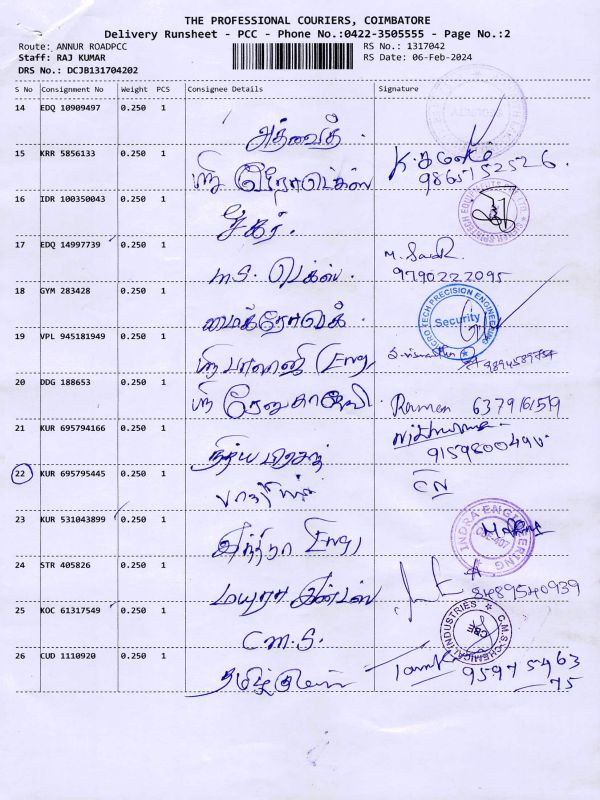 THE PROFESSIONAL COURIERS, COIMBATORE
Delivery Runsheet - PCC - Phone No.:0422-3505555 - Page No.:2
Route: ANNUR ROADPCC RS No.: 1317042
Staff: RAJ KUMAR RS Date: 06-Feb-2024
DRS No.: DCJB131704202
S No Consignment No Weight PCS Consignee Details Signature
14 EDQ 10909497 0.250 1
அத்வைத்
15 KRR 5856133 0.250 1
ஸ்ரீ வீரோடெக்ஸ்
9865752526.
16 IDR 100350043 0.250 1
சேகர்.
17 EDQ 14997739 0.250 1
M.S. டெக்ஸ்.
9790222095
18 GYM 283428 0.250 1
மைக்ரோடெக்
MICRO TECH PRECISION ENGINEERING
Security
19 VPL 945181949 0.250 1
ஸ்ரீ பாலாஜி Eng
9894589754
20 DDG 188653 0.250 1
ஸ்ரீ ரேணுகாதேவி
Raman
21 KUR 695794166 0.250 1
நித்ய பிரசாத்
22 KUR 695795445 0.250 1
CN
23 KUR 531043899 0.250 1
இந்திரா Eng
INDRA ENGINEERING
24 STR 405826 0.250 1
மயூரா இன்டஸ்
8489540939
25 KOC 61317549 0.250 1
C.M.S.
C.M.S. CHEMICAL INDUSTRIES
CBE
26 CUD 1110920 0.250 1
95975463
75